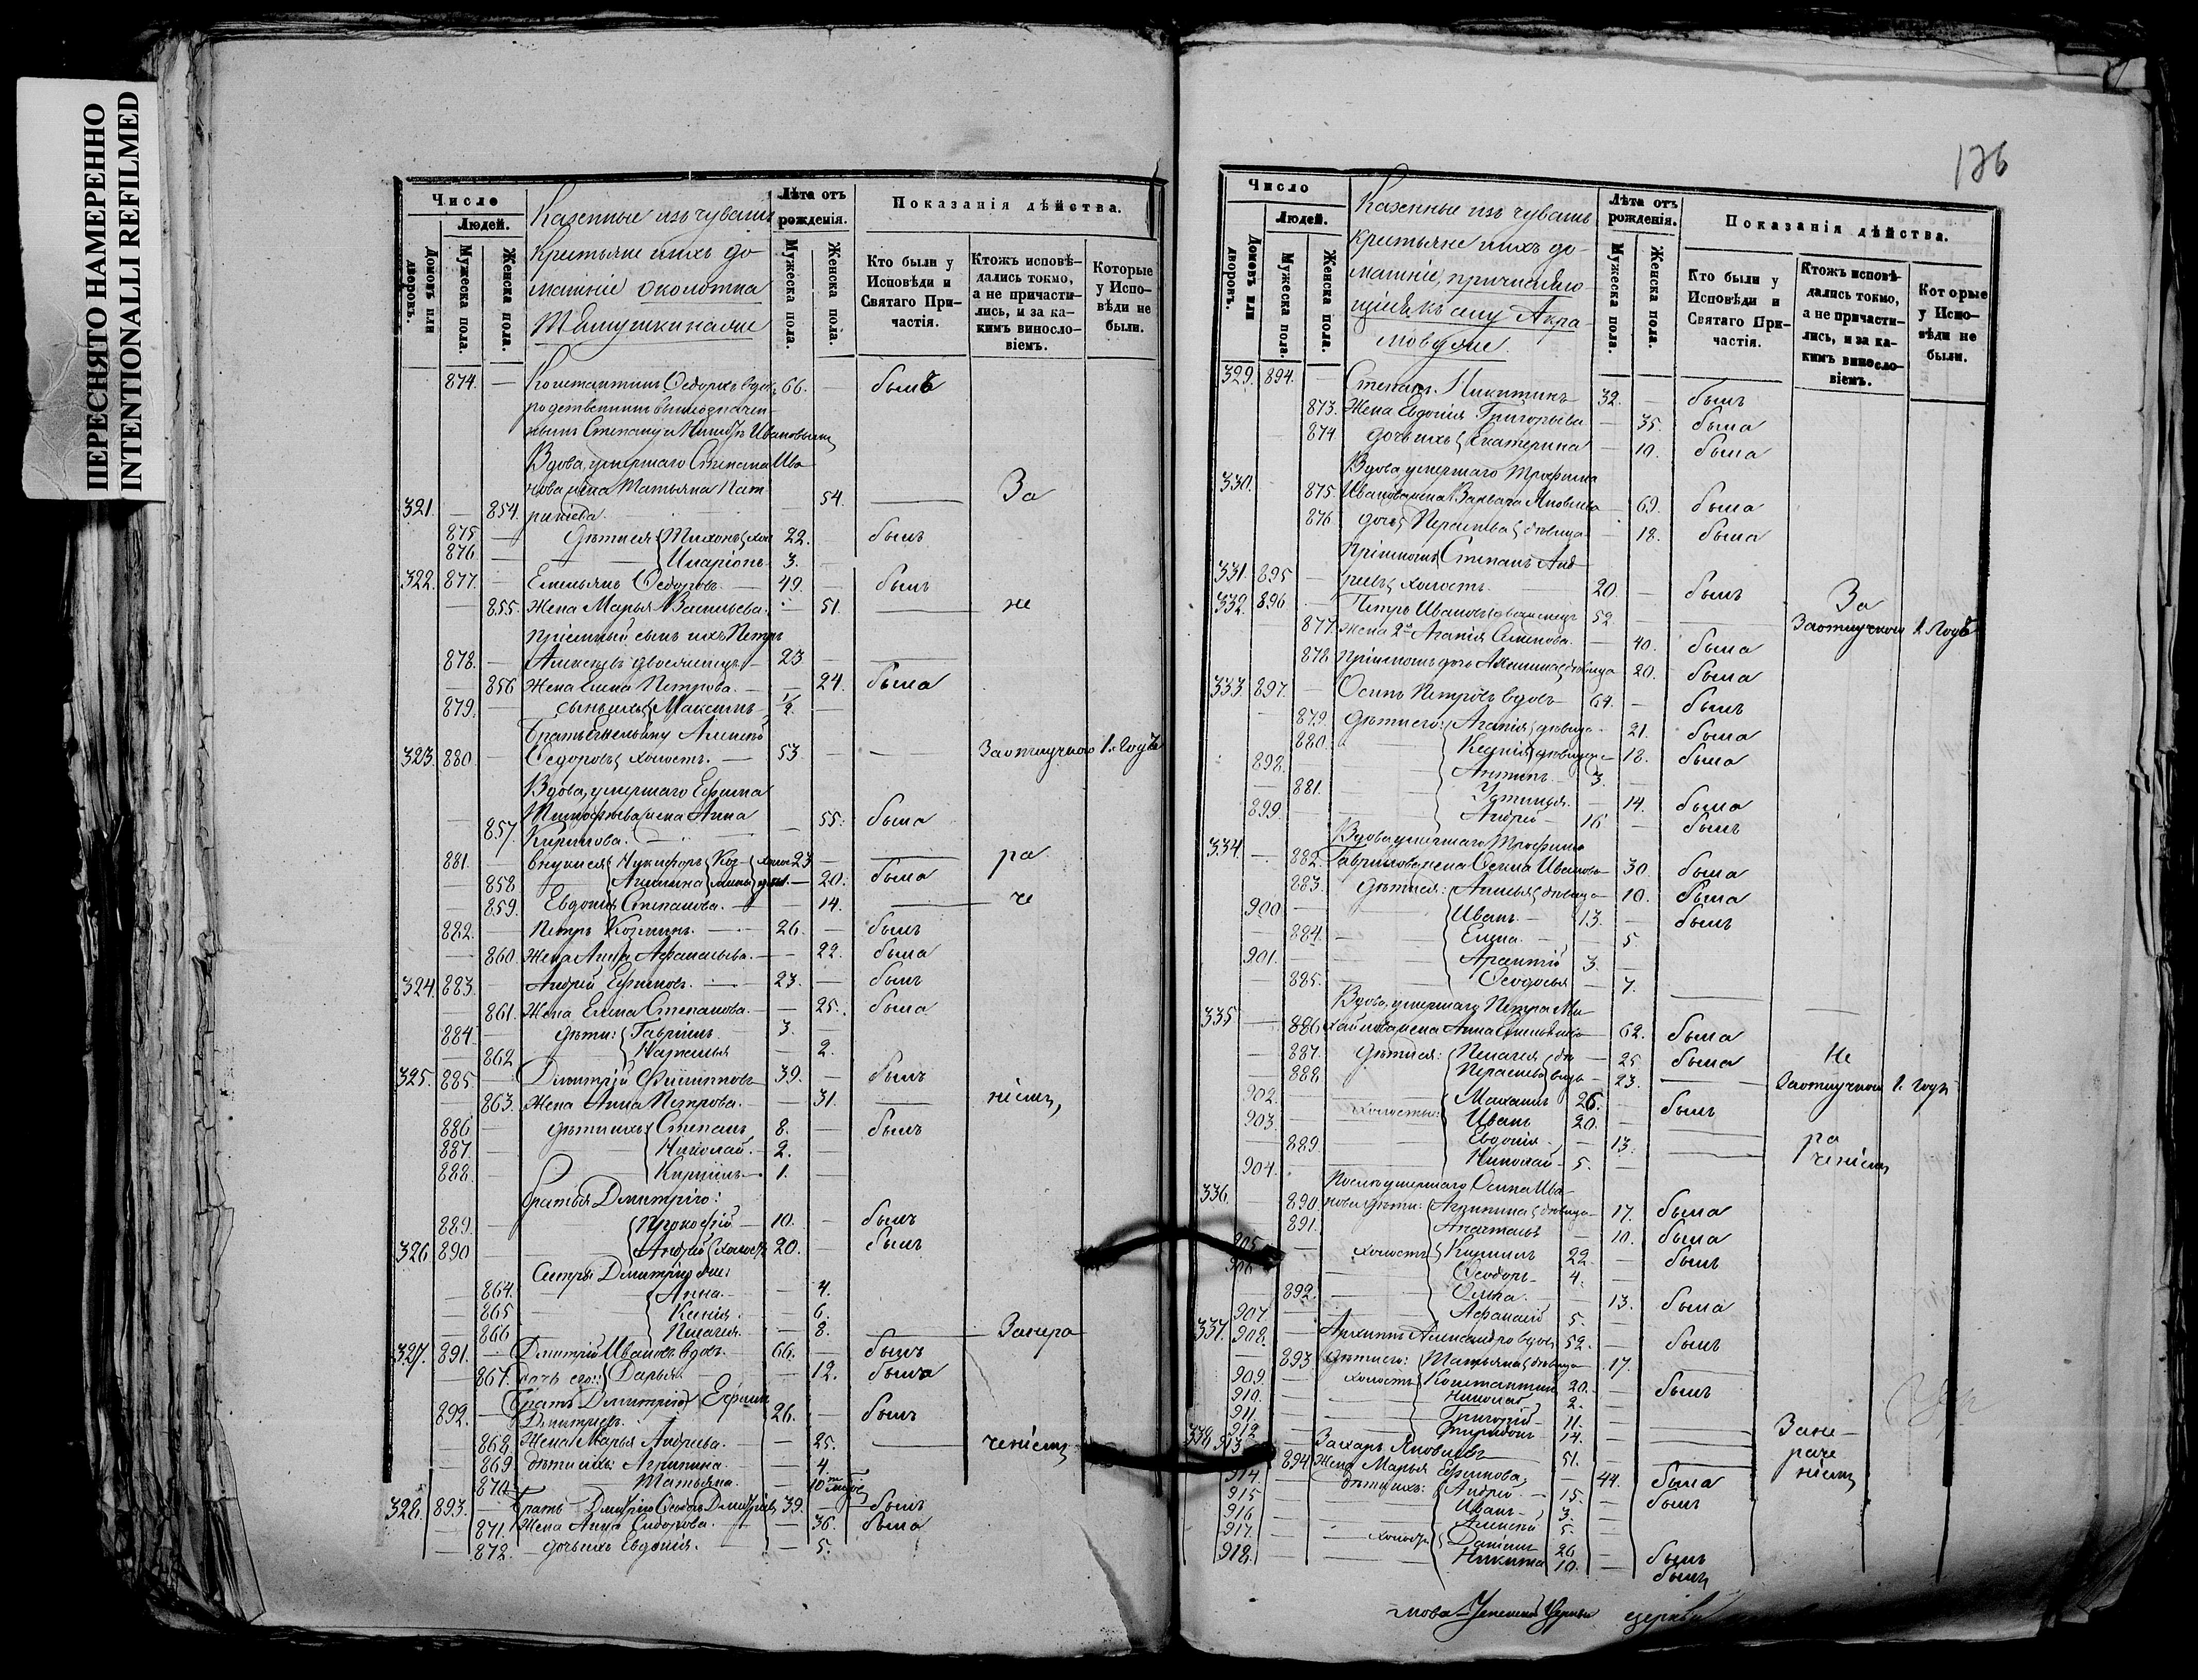 ПЕРЕСНЯТО НАМЕРЕННО
INTENTIONALLI REFILMED
Число
Людей.
Домовъ или дворовъ.
Мужеска пола.
Женска пола.
Казенные изъ чувашъ
Крестьяне и ихъ до-
машніе околотка
Лѣта отъ рожденія.
Мужеска пола.
Женска пола.
Показанія дѣйства.
Кто были у Исповѣди и Святаго Причастія.
Ктожъ исповѣдались токмо, а не причастились, и за какимъ винословіемъ.
Которые у Исповѣди не были.
874. — Константинъ Ѳедоровъ вдовъ 66. — былъ
родственникъ вышеозначен-
Вдова, умершаго Степана Ива-
нова жена Татьяна Пат-
321. — 854. рикіева. — 54. — За
875. — дѣти ея Тихонъ хол 22. — былъ
876. — Иларіонъ 3. —
322. 877. — Емельянъ Ѳедоровъ. 49. — былъ
— 855. Жена Марья Васильева. — 51. — не
Пріемный сынъ ихъ Петръ
878. — Алексѣевъ 23 —
— 856 Жена Елена Петрова. — 24. была
879. — сынъ ихъ Максимъ ½ —
Братъ Емельяну Алексѣй
323. 880. — Ѳедоровъ холостъ. — 53 — — За отлучкою 1. Годъ
Вдова, умершаго Ефима
Тимофѣева жена Анна
— 857. Кирилова. — 55. была
881. — внуки ея Никифоръ 23 — ра
— 858 — Акилина — 20. была
— 859. Евдокія Степанова. — 14. — че
882. — Петръ Козминъ. — 26. — былъ
— 860. Жена Анна Афанасьева. — 22. была
324. 883. — Андрей Ефимовъ. — 23. — былъ
— 861. Жена Елена Степанова. — 25. была
884. — дѣти: Гавріилъ 3.
— 862 Наталья — 2.
325. 885. — Дмитрій Филипповъ 39. — былъ
— 863. Жена Анна Петрова. — 31. — ніемъ,
886 — дѣти ихъ Степанъ 8. — былъ
887. — Николай. — 2. —
888. — Кириллъ — 1. —
братья Дмитрію:
889. — Прокофій — 10. — былъ
326 890 — Андрей холостъ 20. — былъ
Сестры Дмитрію же:
— 864. — Анна. — 4.
— 865 — Ксенія. — 6.
— 866 — Пелагея. — 8. — За нера
327. 891. — Дмитрій Ивановъ вдовъ. 66. — былъ
— 867. дочь его: Дарья. — 12. была
Братъ Дмитрію Ефимъ
892. — Дмитріевъ. 26. — былъ
— 868. Жена Марья Андреева. — 25. — ченіемъ
— 869 дѣти ихъ: Агрипина. — 4.
— 870. — Татьяна. —
328. 893. — Братъ Дмитрію Ѳеодоръ Дмитріевъ 39. — былъ
— 871. Жена Анна Сидорова. — 36. была
— 872. дочь ихъ Евдокія. — 5.
136
Число
Людей.
Домовъ или дворовъ.
Мужеска пола.
Женска пола.
Казенные изъ чувашъ
крестьяне и ихъ до-
машніе, причисляю-
щіеся къ селу Акра-
мову же.
Лѣта отъ рожденія.
Мужеска пола.
Женска пола.
Показанія дѣйства.
Кто были у Исповѣди и Святаго Причастія.
Ктожъ исповѣдались токмо, а не причастились, и за какимъ винословіемъ.
Которые у Исповѣди не были.
329. 894. — Степанъ Никитинъ 32. — былъ
873. Жена Евдокія Григорьева — 35. была
874 дочь ихъ Екатерина — 10. была
Вдова, умершаго Трофима
330. 875. Иванова жена Варвара Яковлева — 69. была
876 дочь Параскева дѣвица — 18. была
Пріемышъ Степанъ Анд-
331. 895 — реевъ холостъ. 20. — былъ За
332. 896. — Петръ Ивановъ 52. — За отлучкою 1. Годъ
877. жена 2я Агапія Семенова. — 40. была
878 Пріемышъ дочь Акилина дѣвица 20. была
333 897. — Осипъ Петровъ вдовъ 64. — былъ
879. дѣти его: Агапія дѣвица 21. была
880. — Ксенія дѣвица 18. была
898. — Антонъ 3. —
881. — Устинья. — 14. была
899 — Андрей — 16 — былъ
Вдова умершаго Трофима
334. — 882. Гаврилова жена Ѳекла Иванова 30. была
883. дѣти ея: дѣвица 10. была
900 — Иванъ — 13. — былъ
884. — Елена. — 5.
901. — 3. —
885. — Ѳеодосья — 7. —
Вдова, умершаго Петра Ми-
335 — 886 хайлова жена Анна 62. была
— 887. дѣти ея: Пелагея 25 была Не
888 Параскева 23. — За отлучкою 1. Годъ
902. — Михаилъ 26. — былъ
903. — холосты: Иванъ 20. —
889. — Евдокія — 13. — ра
904. — Николай — 5. — ченіемъ
После умершаго Осипа Ива-
336. — 890. нова дѣти: Агрипина дѣвица 17. была
891. — 10. была
905 — холостъ Кириллъ 22. — былъ
906 — Ѳеодоръ — 4. —
892. — Ольга. — 13. была
907. — Афанасій 5. —
337. 908. — Архиппъ Александровъ вдовъ 52. — былъ
893. дѣти его: Татьяна дѣвица 17. —
909. — холостъ Константинъ 20. — былъ
910. — Николай 2. —
911. — Григорій 11. —
912 — 14. — За не-
338. 913 — Захаръ Яковлевъ 51. — раче
894 Жена Марья Ефимова. 44. была ніемъ
914. — дѣти ихъ: Андрей — 15. — былъ
915 — Иванъ — 3. —
916 — Алексѣй 5. —
917. — холостъ Даніилъ 26 — былъ
918. — Никита 10. — былъ
мова Успенской Церкви